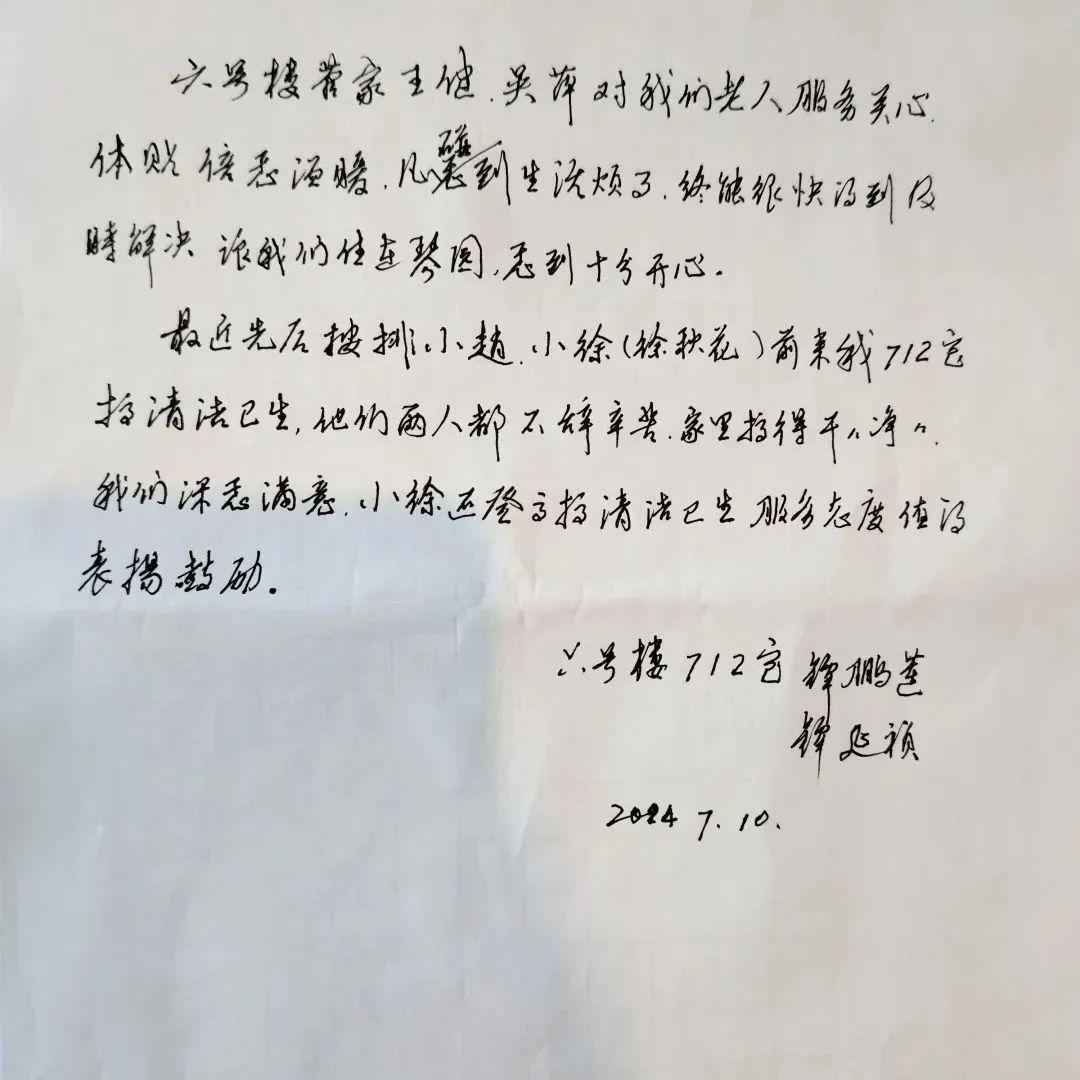 六号楼管家王健、吴萍对我们老人服务关心、
体贴倍感温暖，凡碰到生活烦了，终能很快得到及
时解决 让我们住在琴园，感到十分开心。
最近先后安排小赵、小徐（徐秋花）前来我712室
搞清洁卫生，他们两人都不辞辛苦、家里搞得干〃净〃、
我们深感满意、小徐还登高搞清洁卫生 服务态度值得
表揚鼓励。
六号楼712室 鹏莲
延祯
2024 7.10.